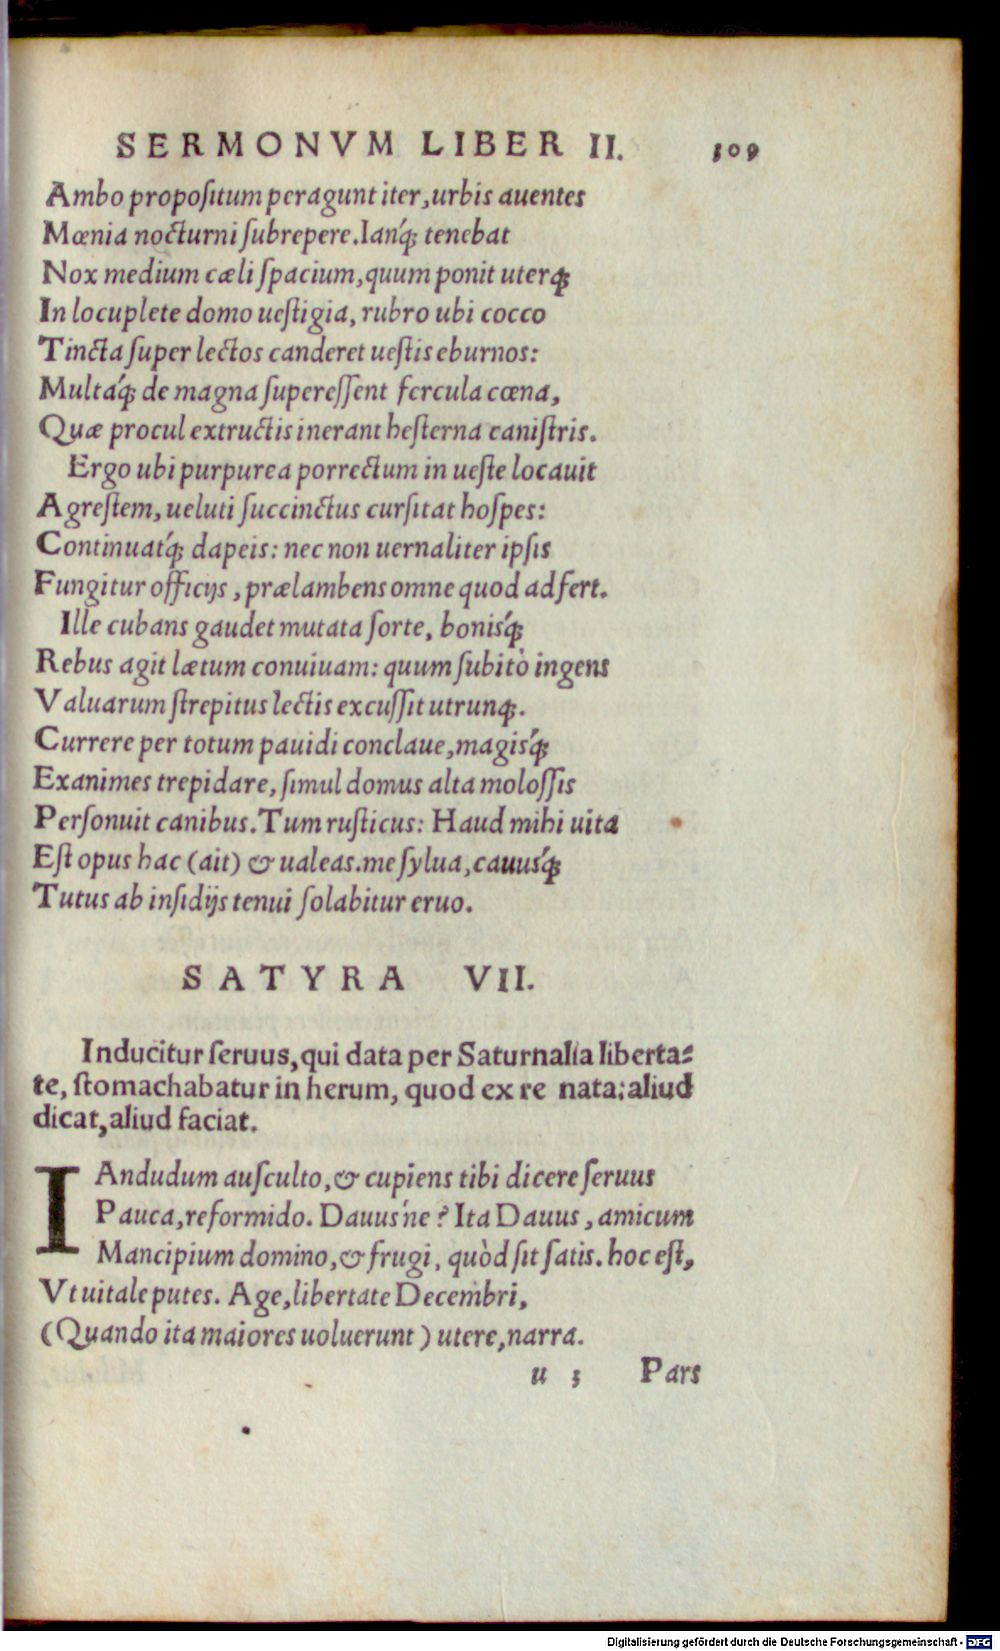 SERMONVM LIBER II. 309
Ambo propoſitum peragunt iter, urbis auentes
Mœnia nocturni ſubrepere. Ianq́; tenebat
Nox medium cæli ſpacium, quum ponit uterq;
In locuplete domo ueſtigia, rubro ubi cocco
Tincta ſuper lectos canderet ueſtis eburnos:
Multaq́; de magna ſupereſſent fercula cœna,
Quæ procul extructis inerant heſterna caniſtris.
Ergo ubi purpurea porrectum in ueſte locauit
Agreſtem, ueluti ſuccinctus curſitat hoſpes:
Continuatq́; dapeis: nec non uernaliter ipſis
Fungitur officijs, prælambens omne quod adfert.
Ille cubans gaudet mutata ſorte, bonisq́;
Rebus agit lætum conuiuam: quum ſubitò ingens
Valuarum ſtrepitus lectis excuſſit utrunq;.
Currere per totum pauidi conclaue, magisq́;
Exanimes trepidare, ſimul domus alta moloſſis
Perſonuit canibus. Tum ruſticus: Haud mihi uita
Eſt opus hac (ait) & ualeas. me ſylua, cauusq́;
Tutus ab inſidijs tenui ſolabitur eruo.
SATYRA VII.
Inducitur ſeruus, qui data per Saturnalia liberta-
te, ſtomachabatur in herum, quod ex re nata: aliud
dicat, aliud faciat.
IAndudum auſculto, & cupiens tibi dicere ſeruus
Pauca, reformido. Dauus'ne? Ita Dauus, amicum
Mancipium domino, & frugi, quòd ſit ſatis. hoc eſt,
Vt uitale putes. Age, libertate Decembri,
(Quando ita maiores uoluerunt) utere, narra.
u 3 Pars
Digitalisierung gefördert durch die Deutsche Forschungsgemeinschaft - DFG